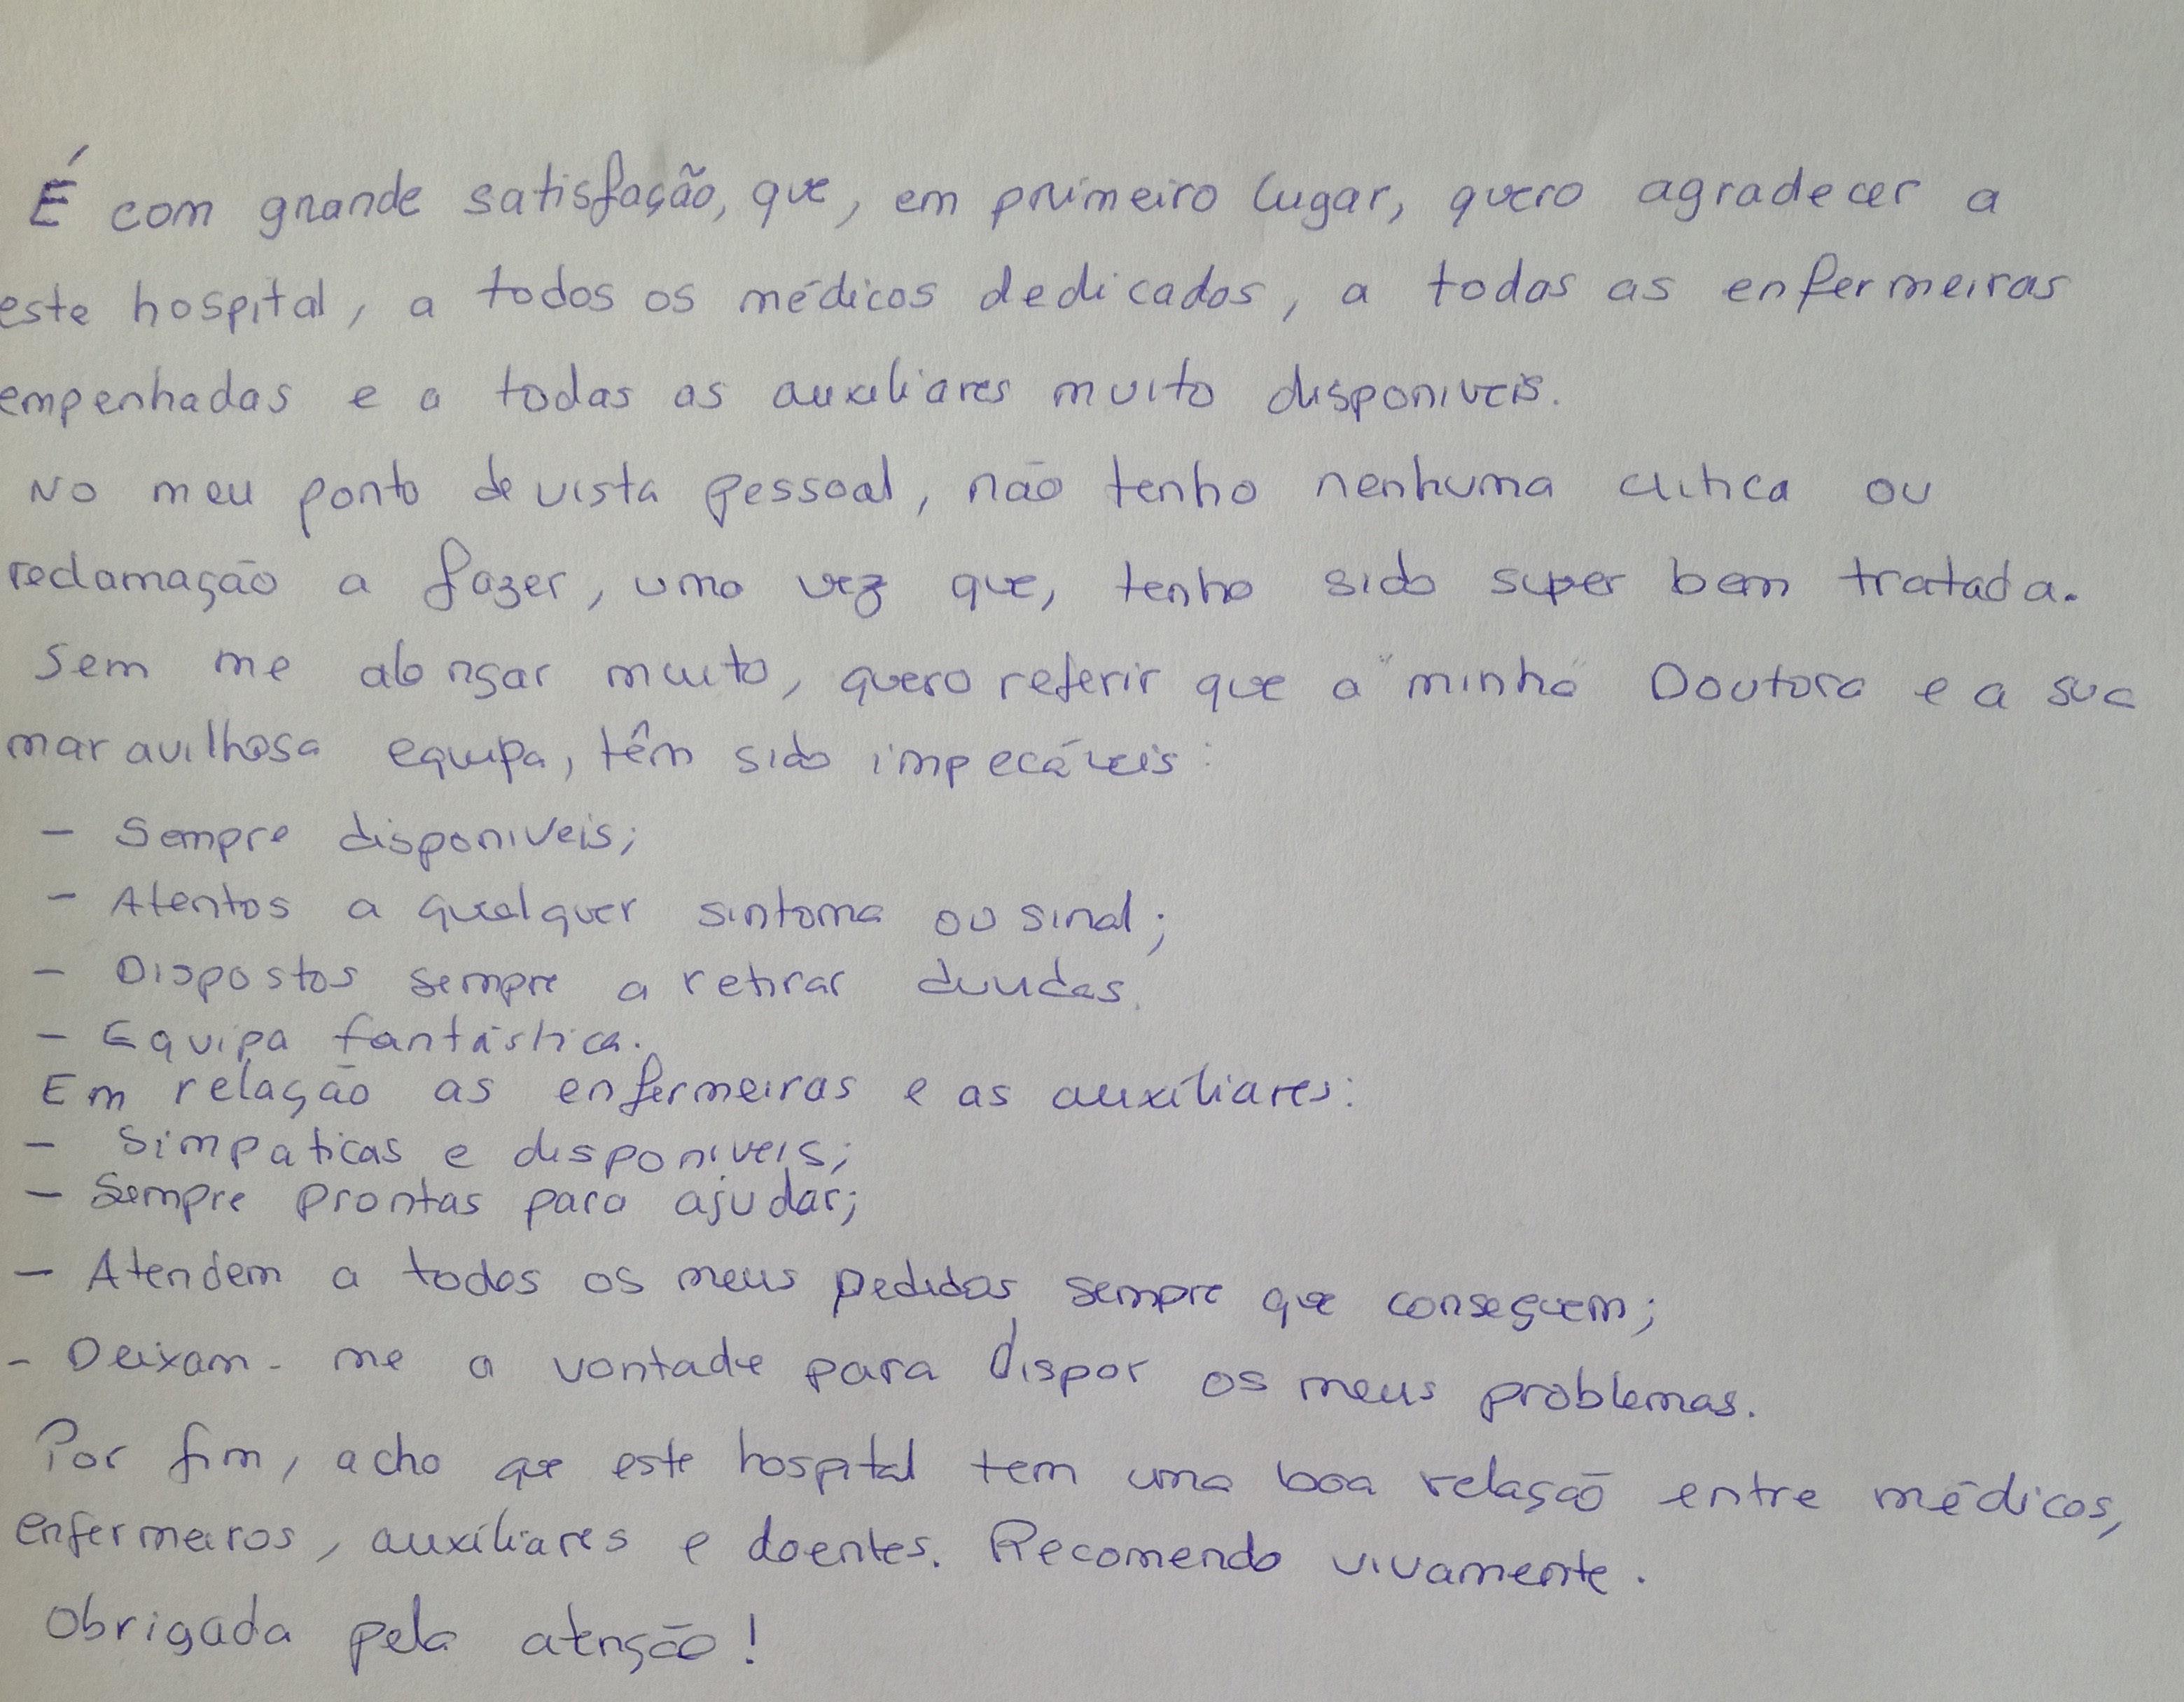 É com grande satisfação, que, em primeiro lugar, quero agradecer a
este hospital, a todos os médicos dedicados, a todas as enfermeiras
empenhadas e a todas as auxiliares muito disponiveis.
No meu ponto de vista pessoal, não tenho nenhuma critica ou
reclamação a fazer, uma vez que, tenho sido super bem tratada.
Sem me alongar muito, quero referir que a "minha" Doutora e a sua
maravilhosa equipa, têm sido impecáveis:
- Sempre disponiveis;
- Atentos a qualquer sintoma ou sinal;
- Dispostos sempre a retirar duvidas.
- Equipa fantástica.
Em relação as enfermeiras e as auxiliares:
- Simpaticas e disponiveis;
- Sempre prontas para ajudar;
- Atendem a todos os meus pedidos sempre que conseguem;
- Deixam-me a vontade para dispor os meus problemas.
Por fim, acho que este hospital tem uma boa relação entre médicos,
enfermeiros, auxiliares e doentes. Recomendo vivamente.
Obrigada pela atenção!